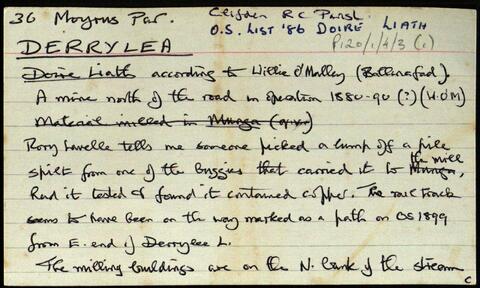 36 Moyrus Par. Clifden RC Parish
O.S. LIST '86 DOIRE LIATH
P120/1/4/3 (1)
DERRYLEA
Doire Liath according to Willie O'Malley (Ballinafad).
A mine north of the road in operation 1880-90 (?) (W.O'M)
Material milled in Munga (q.v.)
Rory Lavelle tells me someone picked a lump off a pile
spilt from one of the buggies that carried it to Munga, the mill
had it tested & found it contained copper. The rail track
seems to have been on the way marked as a path on OS 1899
from E. end of Derrylea L.
The milling buildings are on the N. bank of the stream
c